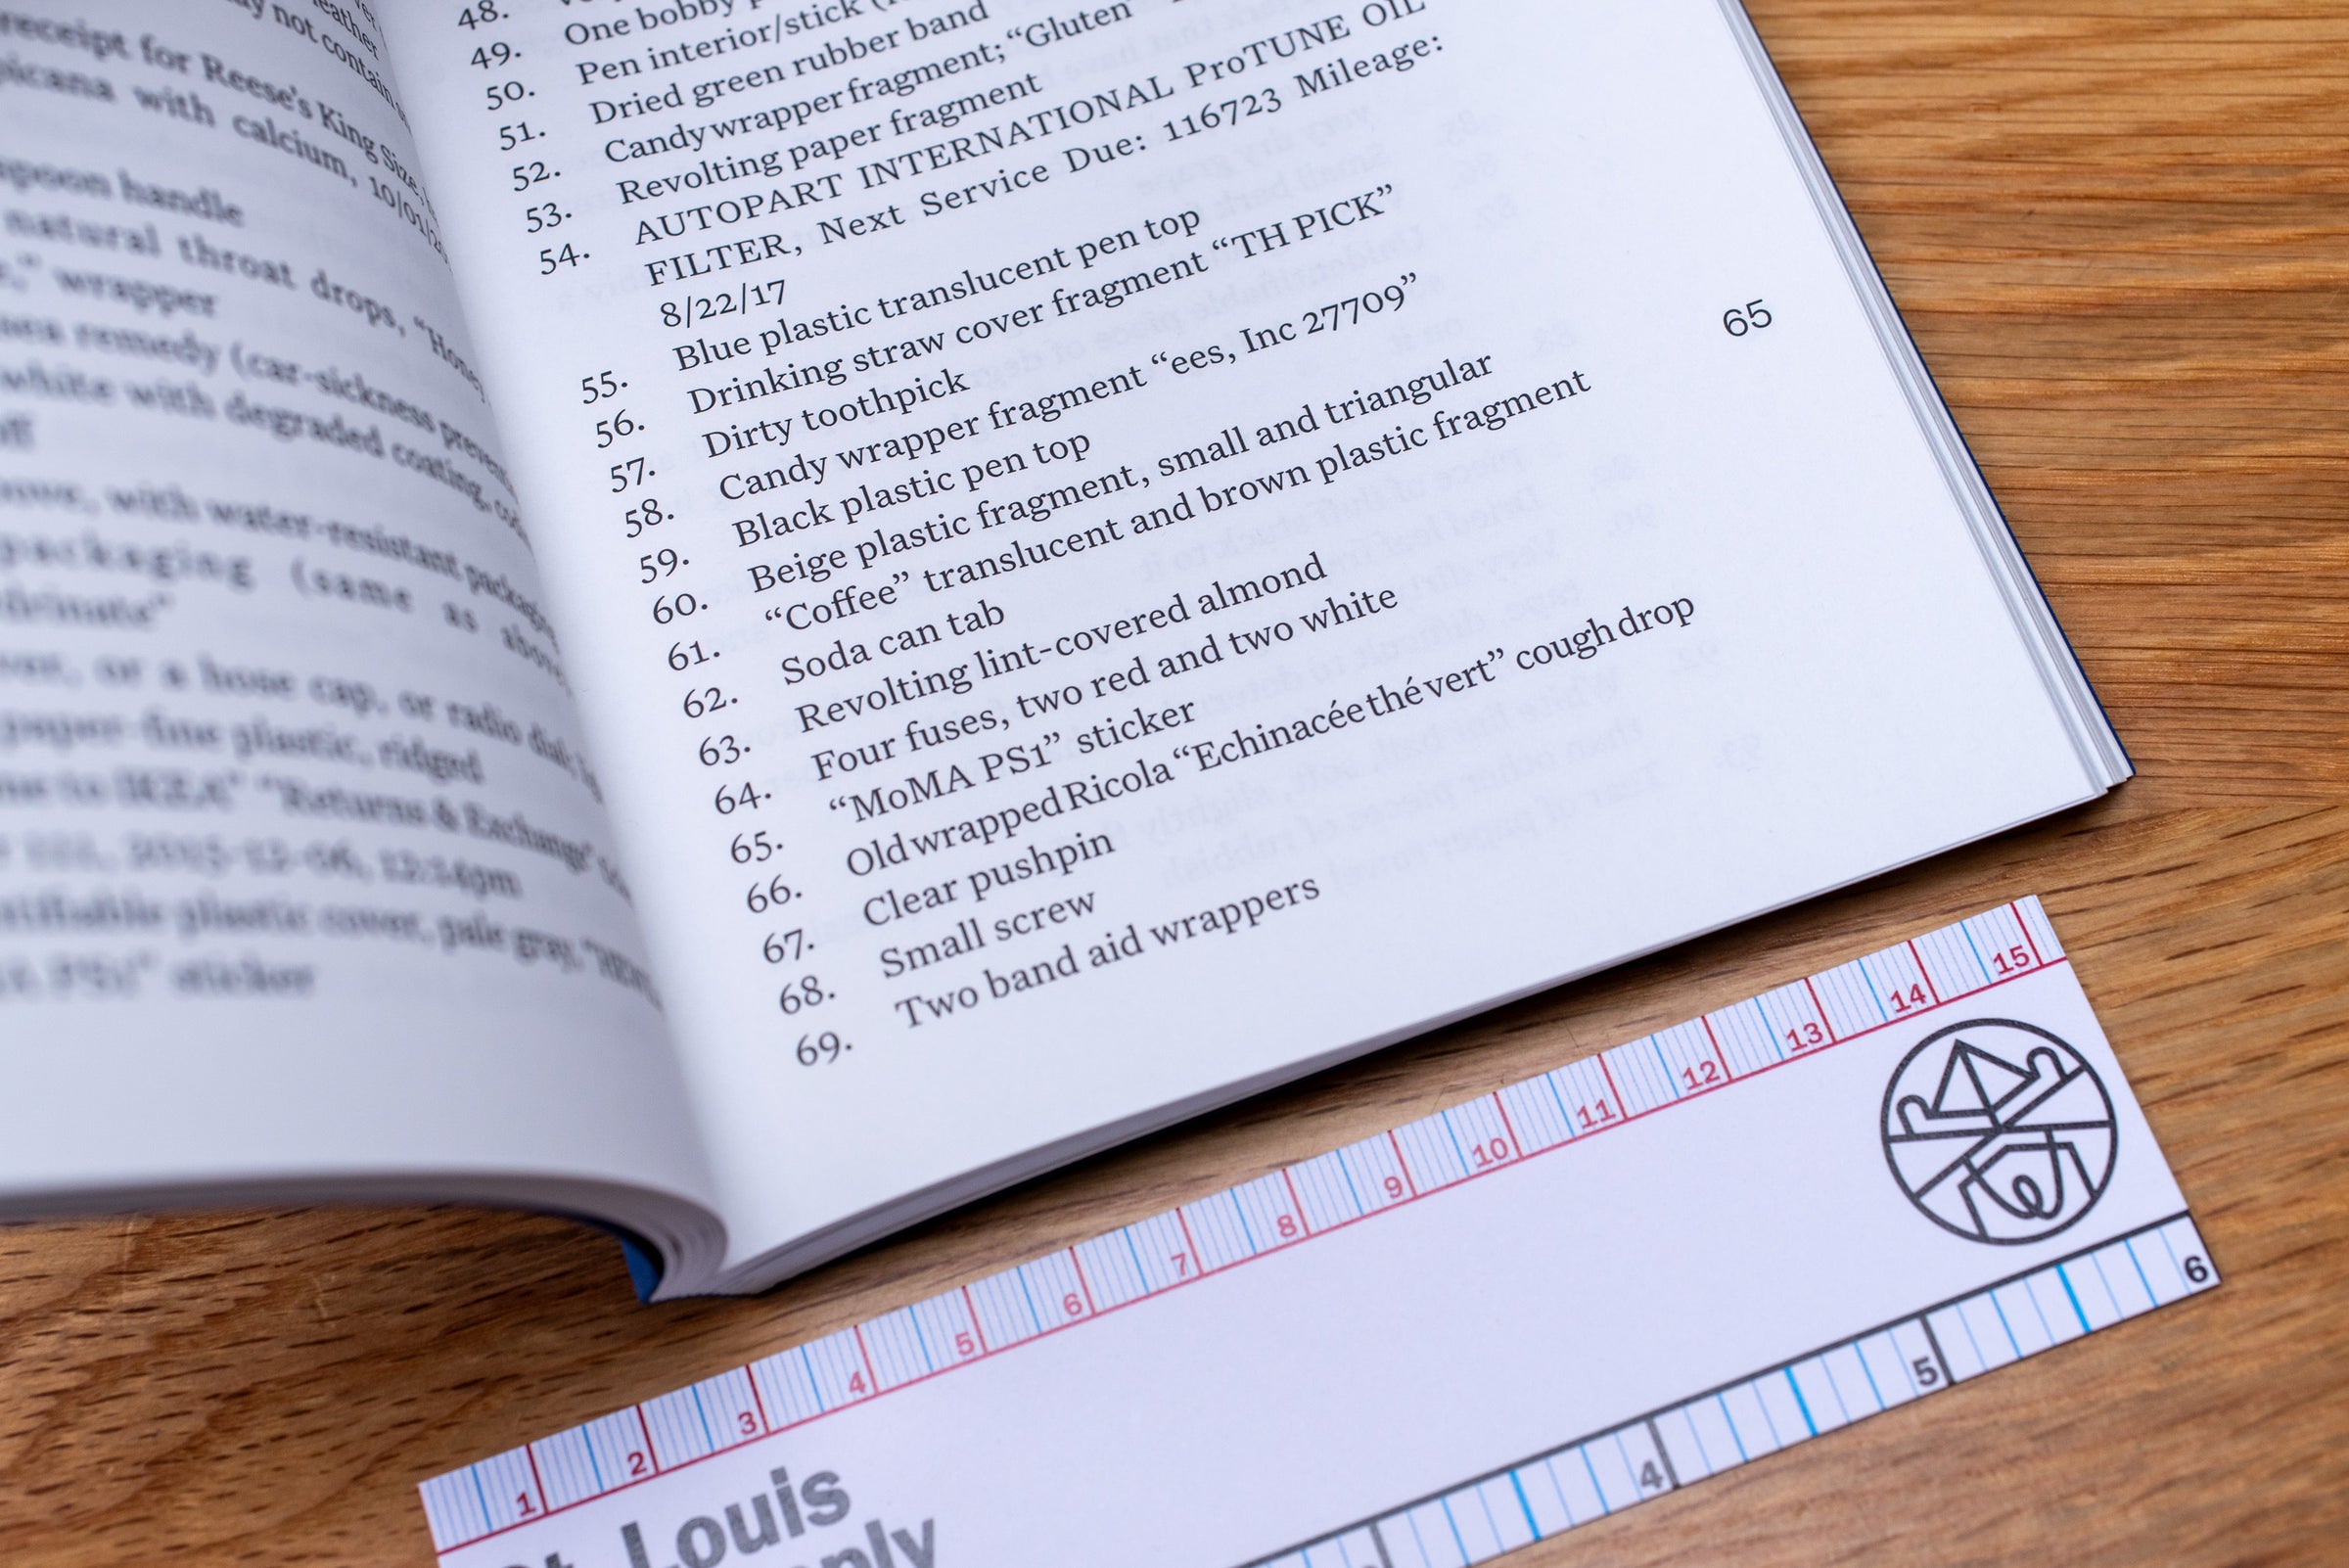 not contain
receipt for Reese's King Size
with calcium, 10/01/
spoon handle
natural throat drops, "Honey
wrapper
remedy (car-sickness
white with degraded coating,
with water-resistant
packaging (same as above
or a hose cap, or radio
plastic, ridged
to IKEA" "Returns & Exchange"
2015-12-06, 12:14pm
plastic cover, pale gray,
PS1" sticker
48.
49. One bobby
50. Pen interior/stick
51. Dried green rubber band
52. Candy wrapper fragment; "Gluten
53. Revolting paper fragment
54. AUTOPART INTERNATIONAL ProTUNE OIL
FILTER, Next Service Due: 116723 Mileage:
8/22/17
55. Blue plastic translucent pen top
56. Drinking straw cover fragment "TH PICK"
57. Dirty toothpick
58. Candy wrapper fragment "ees, Inc 27709"
59. Black plastic pen top
60. Beige plastic fragment, small and triangular
61. "Coffee" translucent and brown plastic fragment
62. Soda can tab
63. Revolting lint-covered almond
64. Four fuses, two red and two white
65. "MoMA PS1" sticker
66. Old wrapped Ricola "Echinacée thé vert" cough drop
67. Clear pushpin
68. Small screw
69. Two band aid wrappers
65
1 2 3 4 5 6 7 8 9 10 11 12 13 14 15
St. Louis
4 5 6